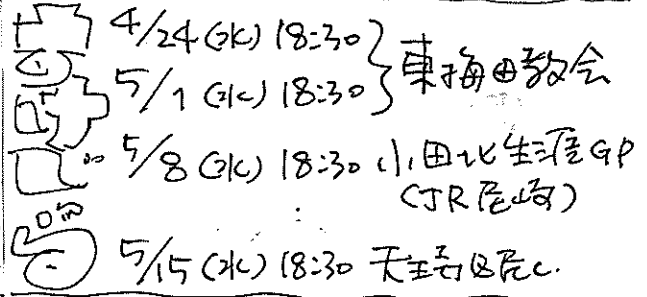 4/24(水) 18:30
5/1(水) 18:30 } 東梅田教会
5/8(水) 18:30 小田北生涯GP
(JR尼崎)
5/15(水) 18:30 天王寺区民C.